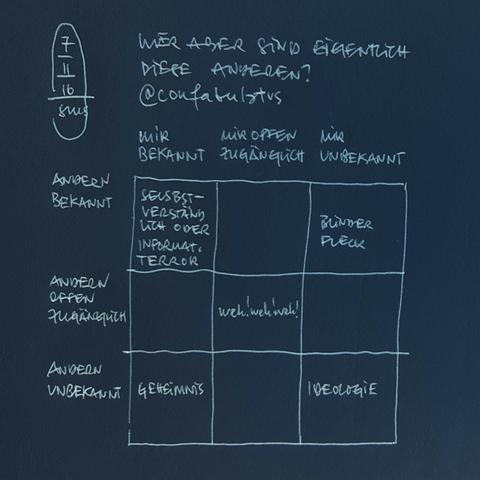 7
11
16
WER ABER SIND EIGENTLICH
DIESE ANDEREN?
@confabulatvs
MIR
BEKANNT
MIR OFFEN
ZUGÄNGLICH
MIR
UNBEKANNT
ANDERN
BEKANNT
SELSBST-
VERSTÄND
LICH ODER
INFORMAT.
TERROR
BLINDER
FLECK
ANDERN
OFFEN
ZUGÄNGLICH
weh! weh! weh!
ANDERN
UNBEKANNT
GEHEIMNIS
IDEOLOGIE